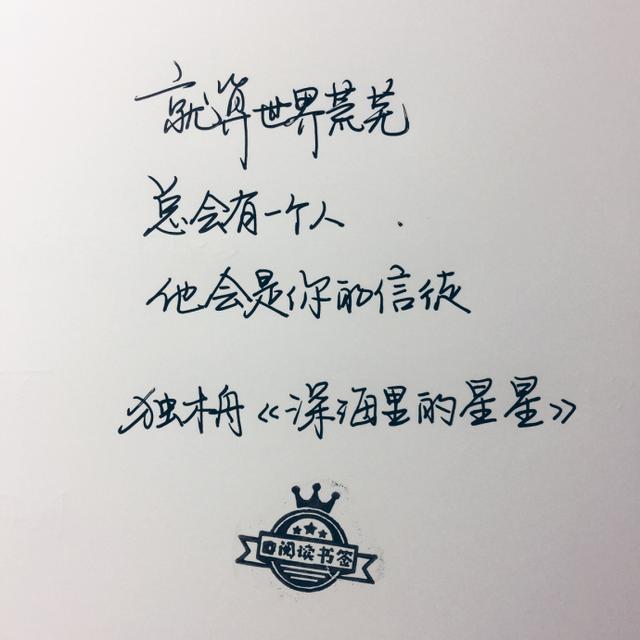 就算世界荒芜
总会有一个人
他会是你的信徒
独木舟《深海里的星星》
阅读书签